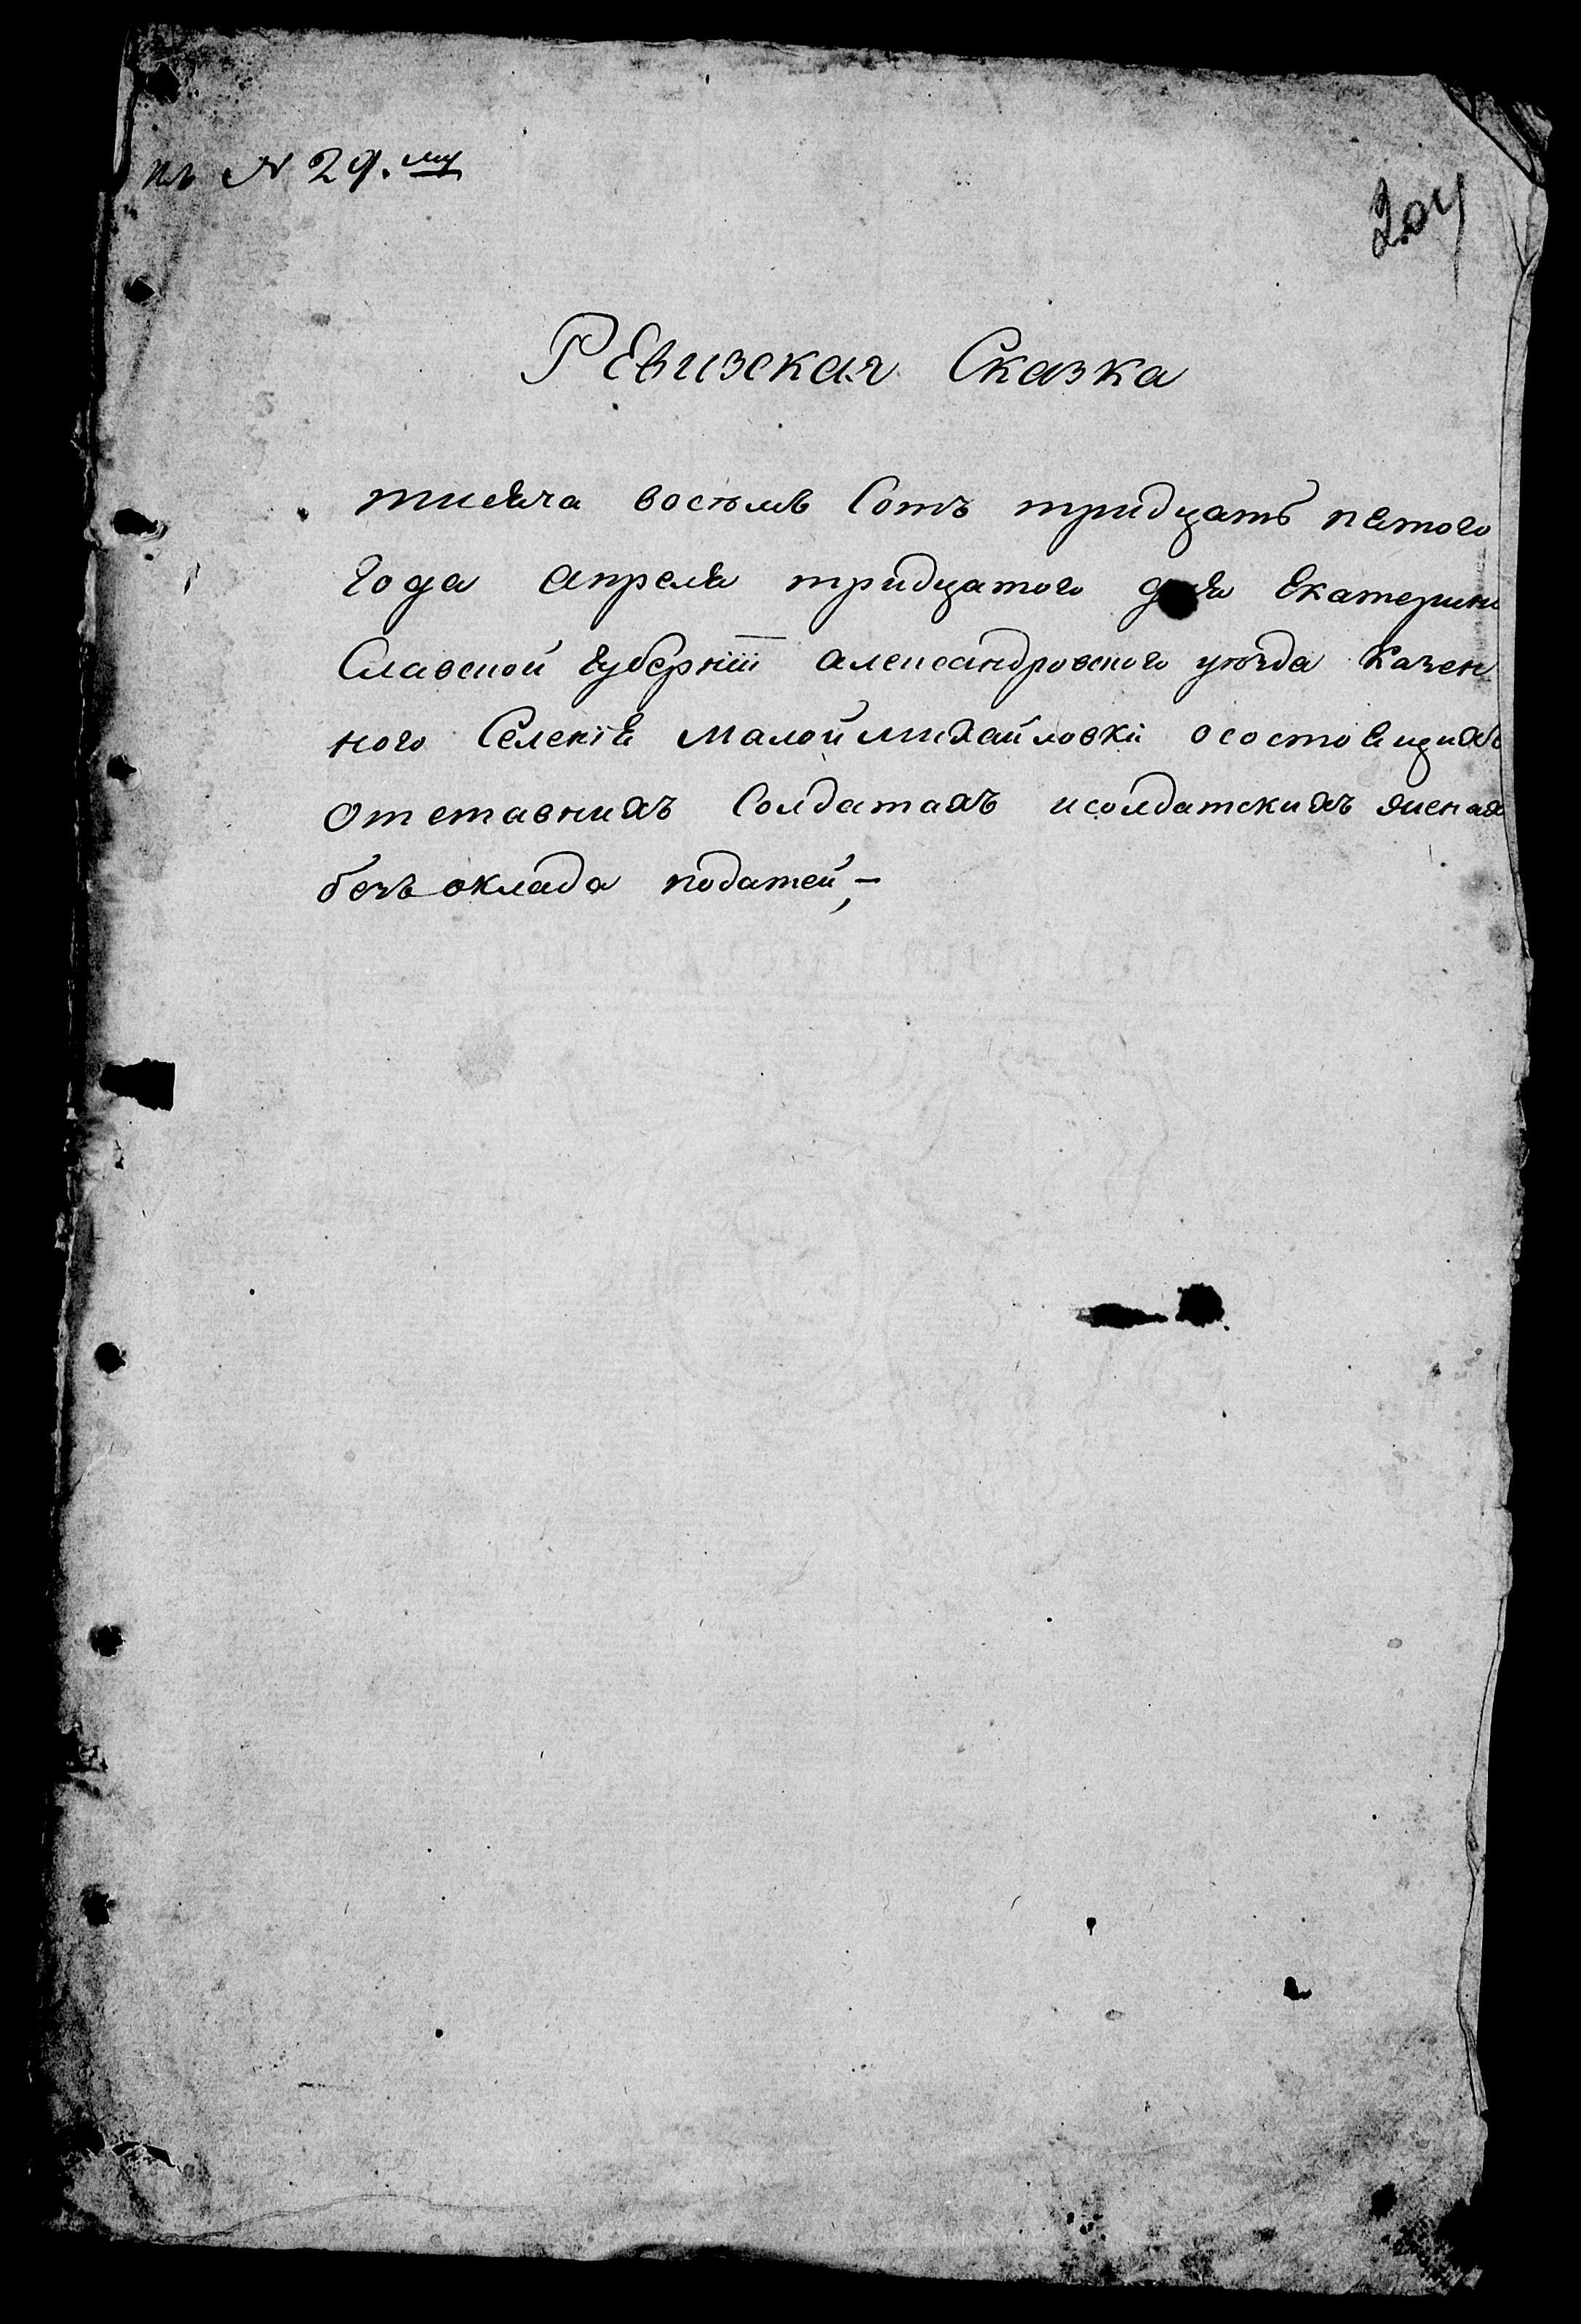 къ N 29.му
204
РЕвизская Сказка
тисяча восемъ Сотъ тридцать пятого
года апреля тридцатого дня Екатерино
Славской губерніи александровского уезда Казен
ного Селенія малой михайловки осостоящихъ
отставнихъ Солдатахъ исолдатскихъ женах
безъ оклада податей,–